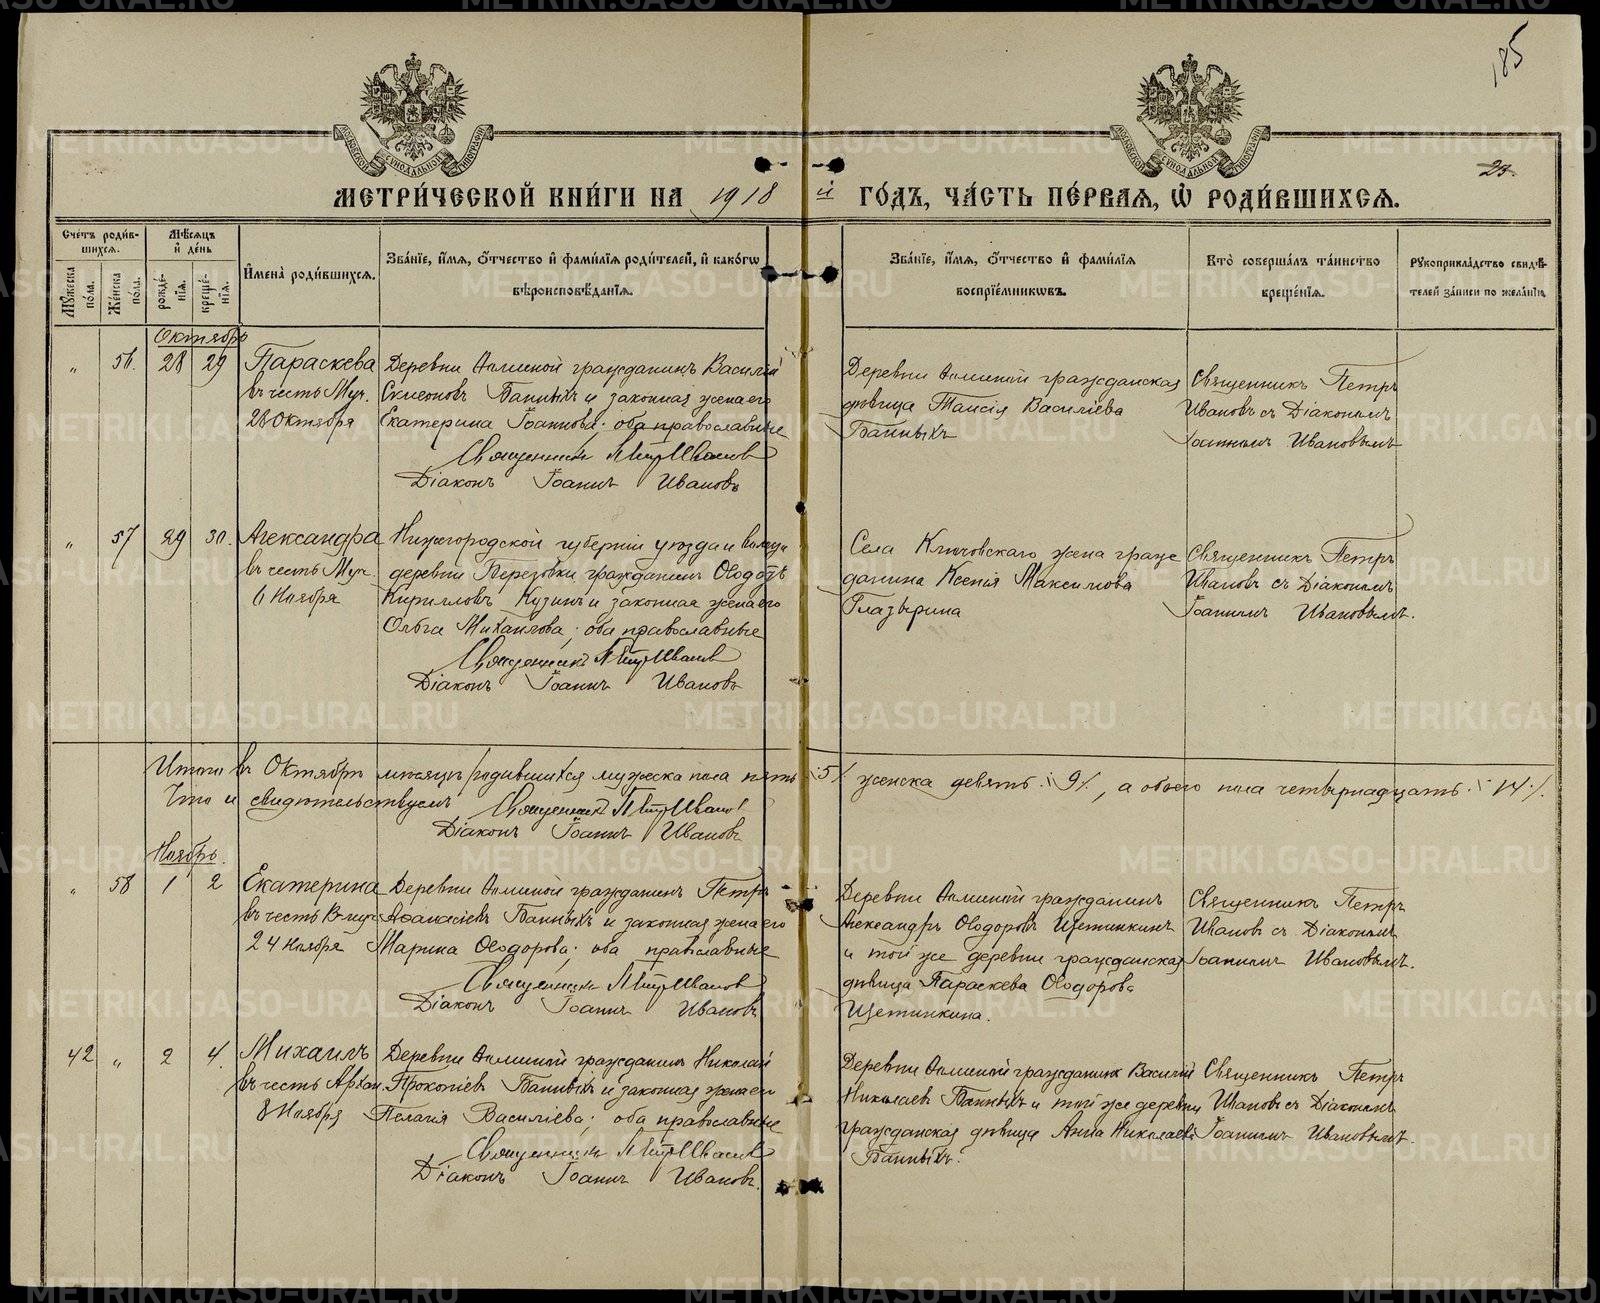 185
23
МЕТРИ́ЧЕСКОЙ КНИ́ГИ НА 1918 й ГО́ДЪ, ЧА́СТЬ ПЕ́РВАЯ, Ѡ РОДИ́ВШИХСЯ.
Сче́тъ роди́вшихся.
Му́жеска по́ла.
Же́нска по́ла.
Мѣ́сяцъ и де́нь
рожде́нїя.
креще́нїя.
Имена̀ роди́вшихся.
Зва́нїе, и́мя, о́тчество и фами́лїя роди́телей, и како́гѡ
вѣроисповѣ́данїя.
Зва́нїе, и́мя, о́тчество и фами́лїя
воспрїе́мникѡвъ.
Кто̀ соверша́лъ та́инство
креще́нїя.
Рукоприкла́дство свидѣ́-
телей за́писи по жела́нїю.
Октябрь
„ 56. 28 29
Параскева
въ честь Муч.
28 Октября
Деревни гражданинъ Василій
Симеоновъ Банныхъ и законная жена его
Екатерина Іоаннова; оба православные
Священникъ Петръ Ивановъ
Діаконъ Іоаннъ Ивановъ
Деревни гражданская
дѣвица Таисія Василіева
Банныхъ
Священникъ Петръ
Ивановъ съ Діакономъ
Іоанномъ Ивановымъ
„ 57 29 30.
Александра
въ честь Муч.
6 Ноября
Нижегородской губерніи уѣзда и волости
деревни Березовки гражданинъ Ѳеодотъ
Кирилловъ Кузинъ и законная жена его
Ольга Михаилова; оба православные
Священникъ Петръ Ивановъ
Діаконъ Іоаннъ Ивановъ
Села Ключовскаго жена граж-
данина Ксенія Максимова
Глазырина
Священникъ Петръ
Ивановъ съ Діакономъ
Іоанномъ Ивановымъ.
Итого въ Октябрѣ мѣсяцѣ родившихся мужеска пола пять /5/ женска девять /9/, а обоего пола четырнадцать /14/.
Что и свидѣтельствуемъ Священникъ Петръ Ивановъ
Діаконъ Іоаннъ Ивановъ
Ноябрь.
„ 58 1 2
Екатерина
въ честь В-муч.
24 Ноября
Деревни гражданинъ Петръ
Аѳанасіевъ Банныхъ и законная жена его
Марина Ѳеодорова; оба православные
Священникъ Петръ Ивановъ
Діаконъ Іоаннъ Ивановъ
Деревни гражданинъ
Александръ Ѳеодоровъ Щетинкинъ
и той же деревни гражданская
дѣвица Параскева Ѳеодорова
Щетинкина.
Священникъ Петръ
Ивановъ съ Діакономъ
Іоанномъ Ивановымъ.
42 „ 2 4.
Михаилъ
въ честь Архан.
8 Ноября
Деревни гражданинъ Николай
Прокопіевъ Банныхъ и законная жена его
Пелагія Василіева; оба православные
Священникъ Петръ Ивановъ
Діаконъ Іоаннъ Ивановъ.
Деревни гражданинъ Василій
Николаевъ Банныхъ и той же деревни
гражданская дѣвица Анна Николаева
Банныхъ.
Священникъ Петръ
Ивановъ съ Діакономъ
Іоанномъ Ивановымъ.
METRIKI.GASO-URAL.RU